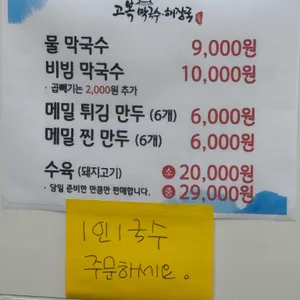 고복 막국수.해장국
물 막국수 9,000원
비빔 막국수 10,000원
• 곱빼기는 2,000원 추가
메밀 튀김 만두 (6개) 6,000원
메밀 찐 만두 (6개) 6,000원
수육 (돼지고기) 소 20,000원
• 당일 준비한 만큼만 판매합니다. 중 29,000원
1인 1국수
주문하세요.